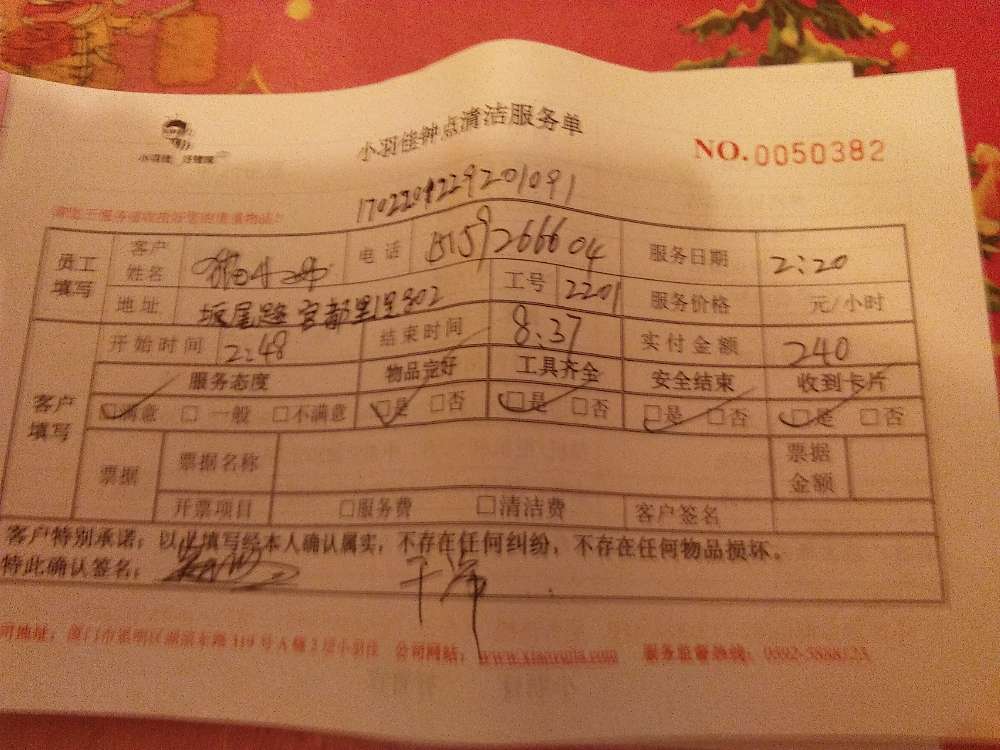 小羽佳 好管家
小羽佳钟点清洁服务单
NO.0050382
1702209229201091
员工填写
客户姓名
电话 15159266604
服务日期 2:20
地址 坂尾路 宫都里 802
工号 2201
服务价格 元/小时
客户填写
开始时间 2:48
结束时间 8:37
实付金额 240
服务态度 物品完好 工具齐全 安全结束 收到卡片
□满意 □一般 □不满意 □是 □否 □是 □否 □是 □否 □是 □否
票据 票据名称 票据金额
开票项目 □服务费 □清洁费 客户签名
客户特别承诺:以上填写经本人确认属实,不存在任何纠纷,不存在任何物品损坏。
特此确认签名:
司地址:厦门市思明区湖滨东路319号A幢2层小羽佳 公司网站:www.xiaoyujia.com 服务监督热线:0592-